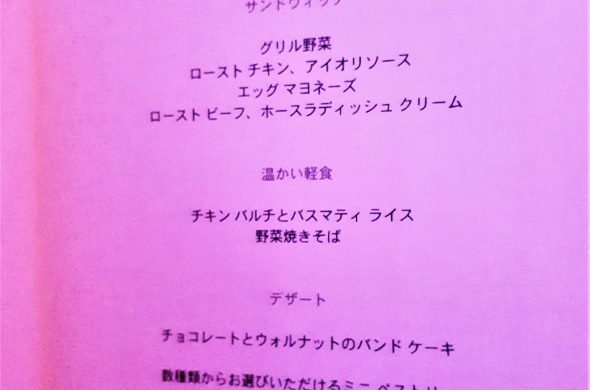 サンドウィッチ
グリル野菜
ロースト チキン、アイオリソース
エッグ マヨネーズ
ロースト ビーフ、ホースラディッシュ クリーム
温かい軽食
チキン バルチとバスマティ ライス
野菜焼きそば
デザート
チョコレートとウォルナットのバンド ケーキ
数種類からお選びいただけるミニ